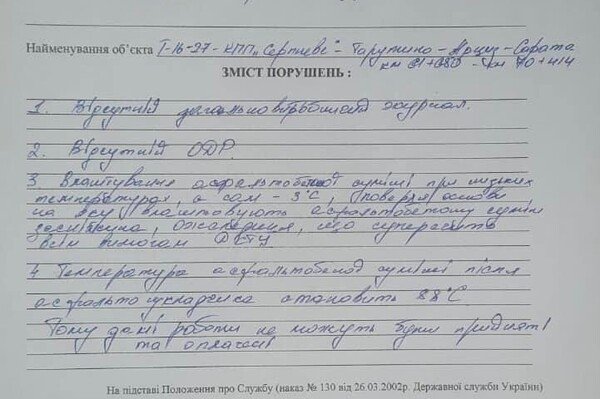 Найменування об’єкта Т-16-27-КПП„Серпневе"-Тарутино-Арциз-Сарата
км 61+680 - км 70+414
ЗМІСТ ПОРУШЕНЬ :
1. Відсутній загальновиробничий журнал.
2. Відсутній ОДР.
3 Влаштування асфальтобетонної суміші при низьких
температурах, а сам - 3°С, (поверхня основи
на яку влаштовують асфальтобетонну суміш
засніжена, ожеледиця, що суперечить
всім вимогам ДСТУ
4 Температура асфальтобетонної суміші після
асфальтоукладчика становить 88°С.
Тому дані роботи не можуть бути прийняті
та оплачені
На підставі Положення про Службу (наказ № 130 від 26.03.2002р. Державної служби України)